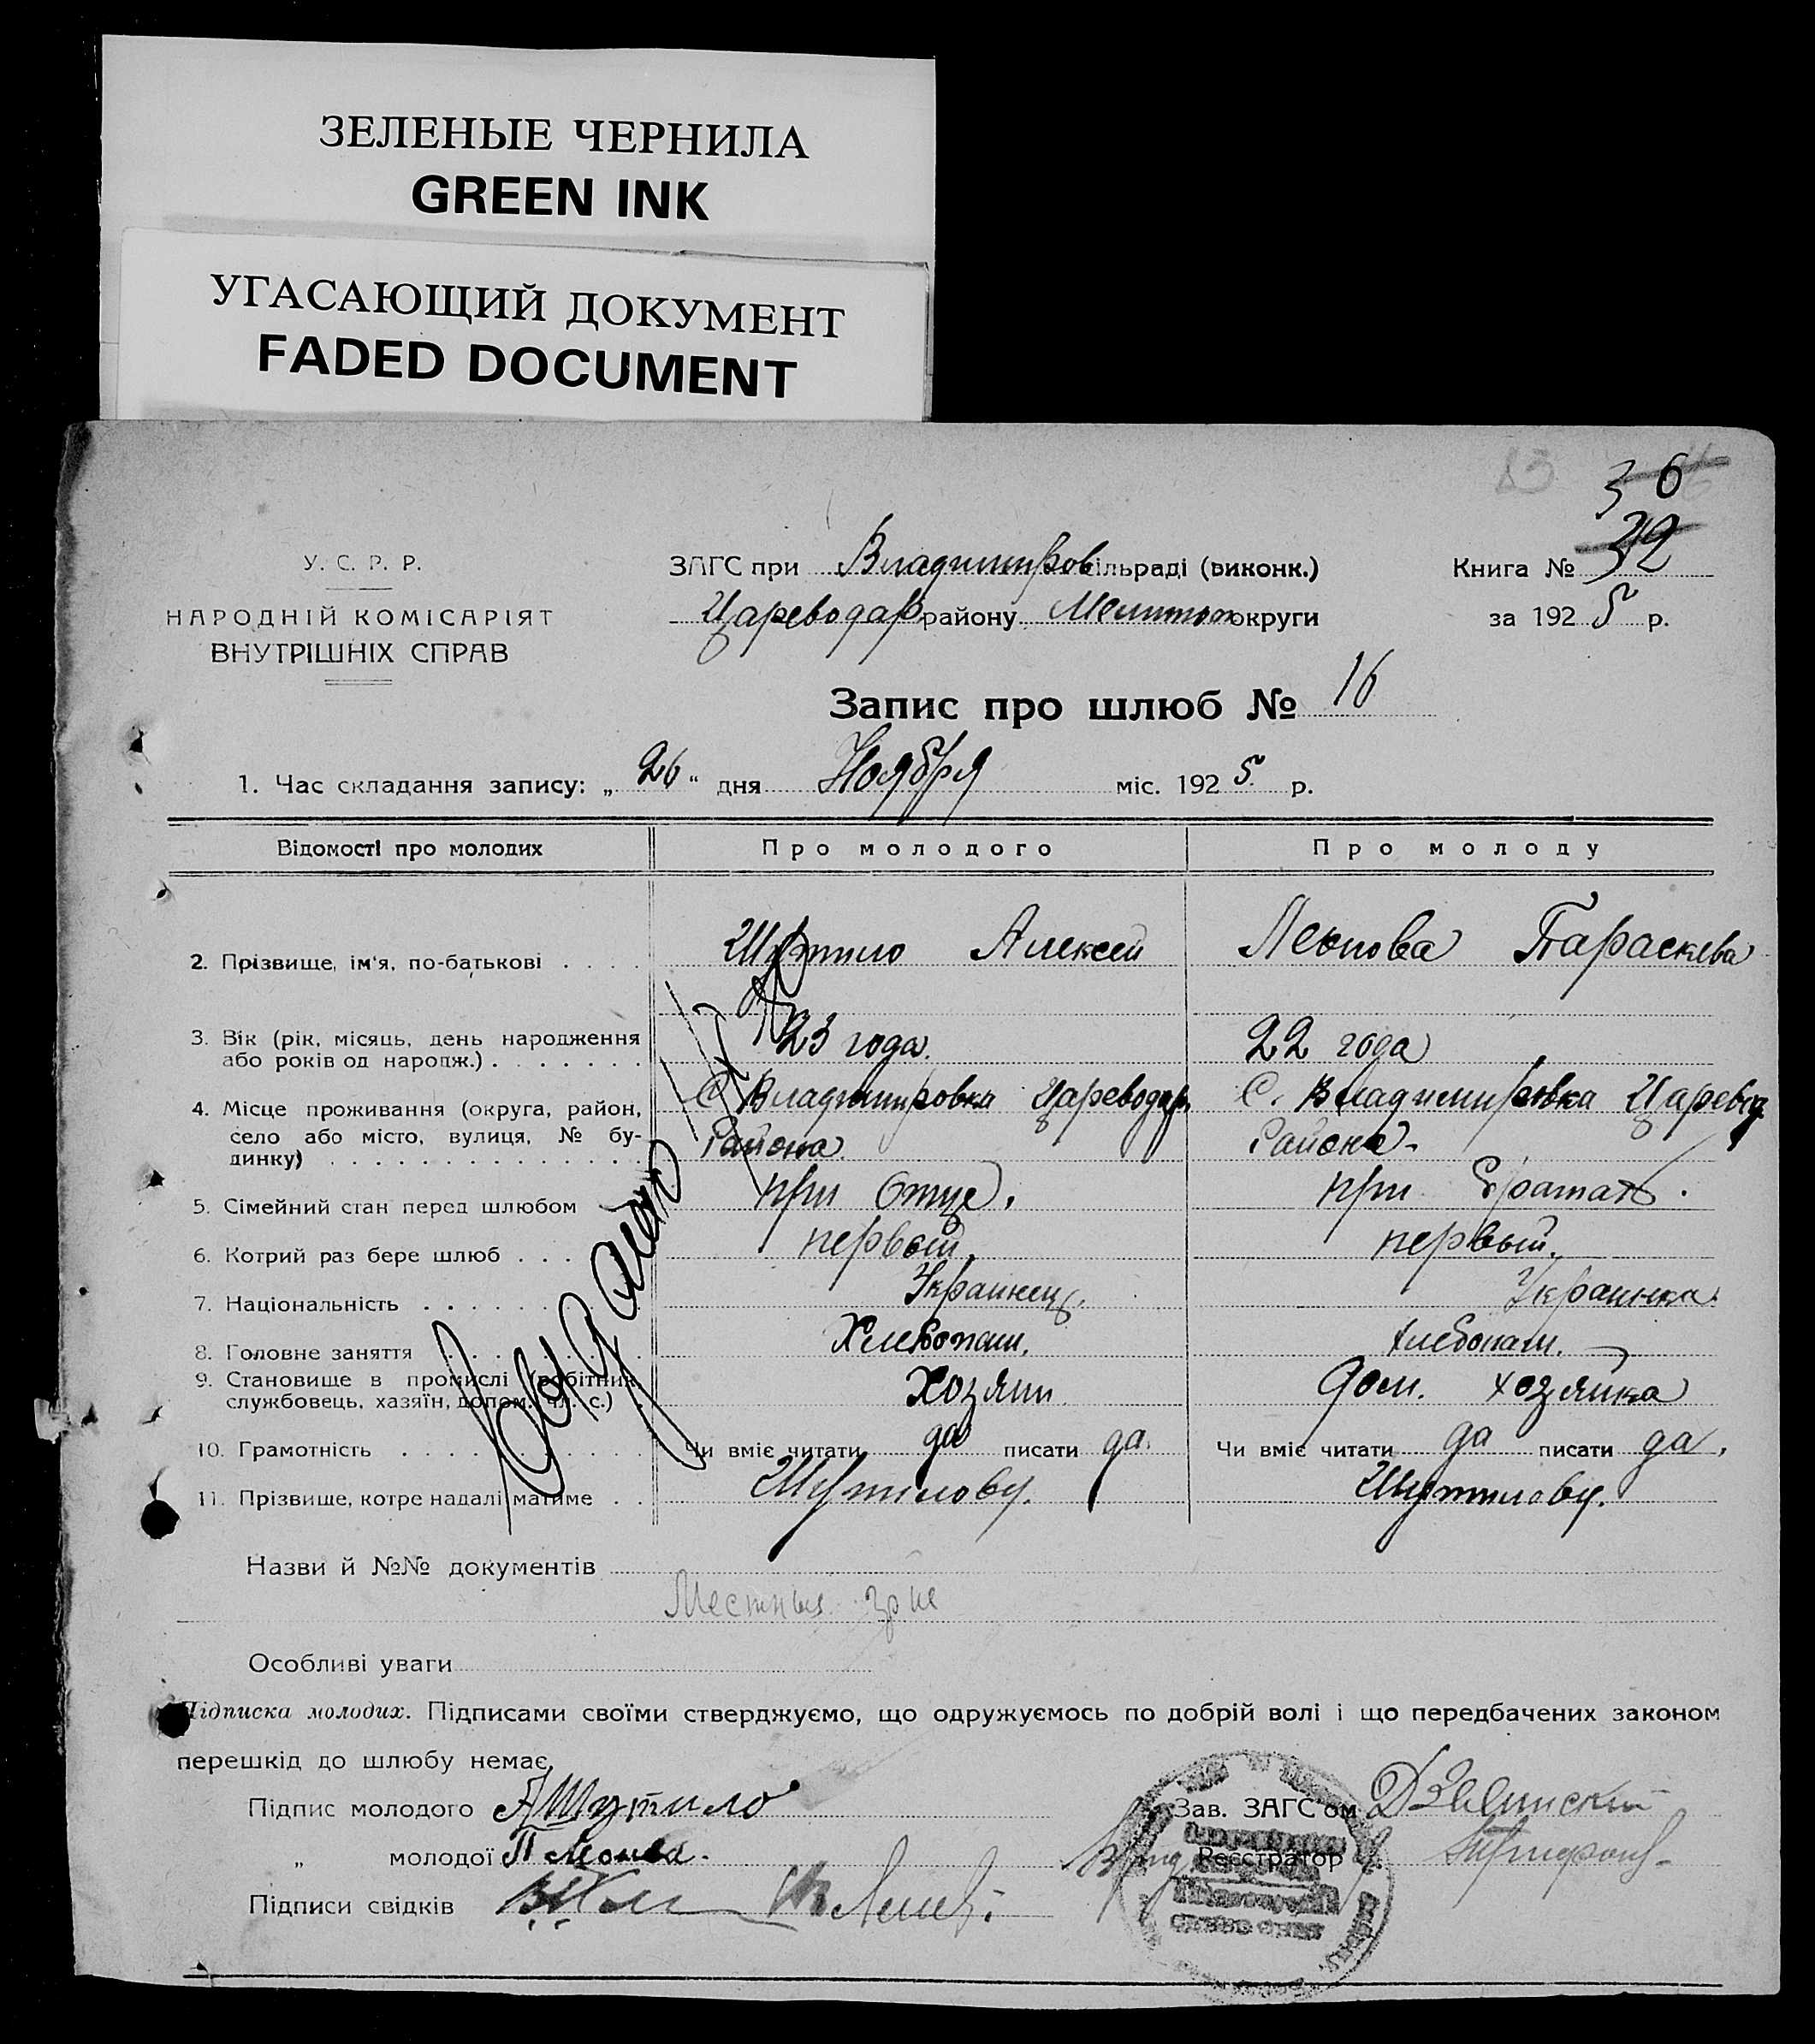 ЗЕЛЕНЫЕ ЧЕРНИЛА
GREEN INK
УГАСАЮЩИЙ ДОКУМЕНТ
FADED DOCUMENT
36
У. С. Р. Р.
ЗАГС при Владимиров сільраді (виконк.)
Книга № 32
НАРОДНІЙ КОМІСАРІЯТ
Цареводар. району Мелитоп округи
за 1925 р.
ВНУТРІШНІХ СПРАВ
Запис про шлюб № 16
1. Час складання запису: „26“ дня Ноября міс. 1925 р.
Відомості про молодих Про молодого Про молоду
2. Прізвище, ім'я, по-батькові . . . . Шутило Алексей Леонова Параскева
3. Вік (рік, місяць, день народження 23 года. 22 года
або років од народж.) . . . . . . .
4. Місце проживання (округа, район, С. Владимировка Цареводар. С. Владимировка Царевод.
село або місто, вулиця, № бу- Района. Района.
динку) . . . . . . . . . . . . .
5. Сімейний стан перед шлюбом при Отце. при братах.
6. Котрий раз бере шлюб . . . первый. первый.
7. Національність . . . . . Украинец. Украинка.
8. Головне заняття Хлебопаш. Хлебопаш.
9. Становище в промислі (робітник, Хозяин дом. хозяйка
службовець, хазяїн, допом. чл. с.)
10. Грамотність . . . . Чи вміє читати да писати да. Чи вміє читати да писати да.
11. Прізвище, котре надалі матиме . . Шутилову. Шутилову.
Назви й №№ документів
Местныя
Особливі уваги
Підписка молодих. Підписами своїми стверджуємо, що одружуємось по добрій волі і що передбачених законом
перешкід до шлюбу немає
Підпис молодого АШутило Зав. ЗАГС'ом
„ молодої П Реєстратор
Підписи свідків